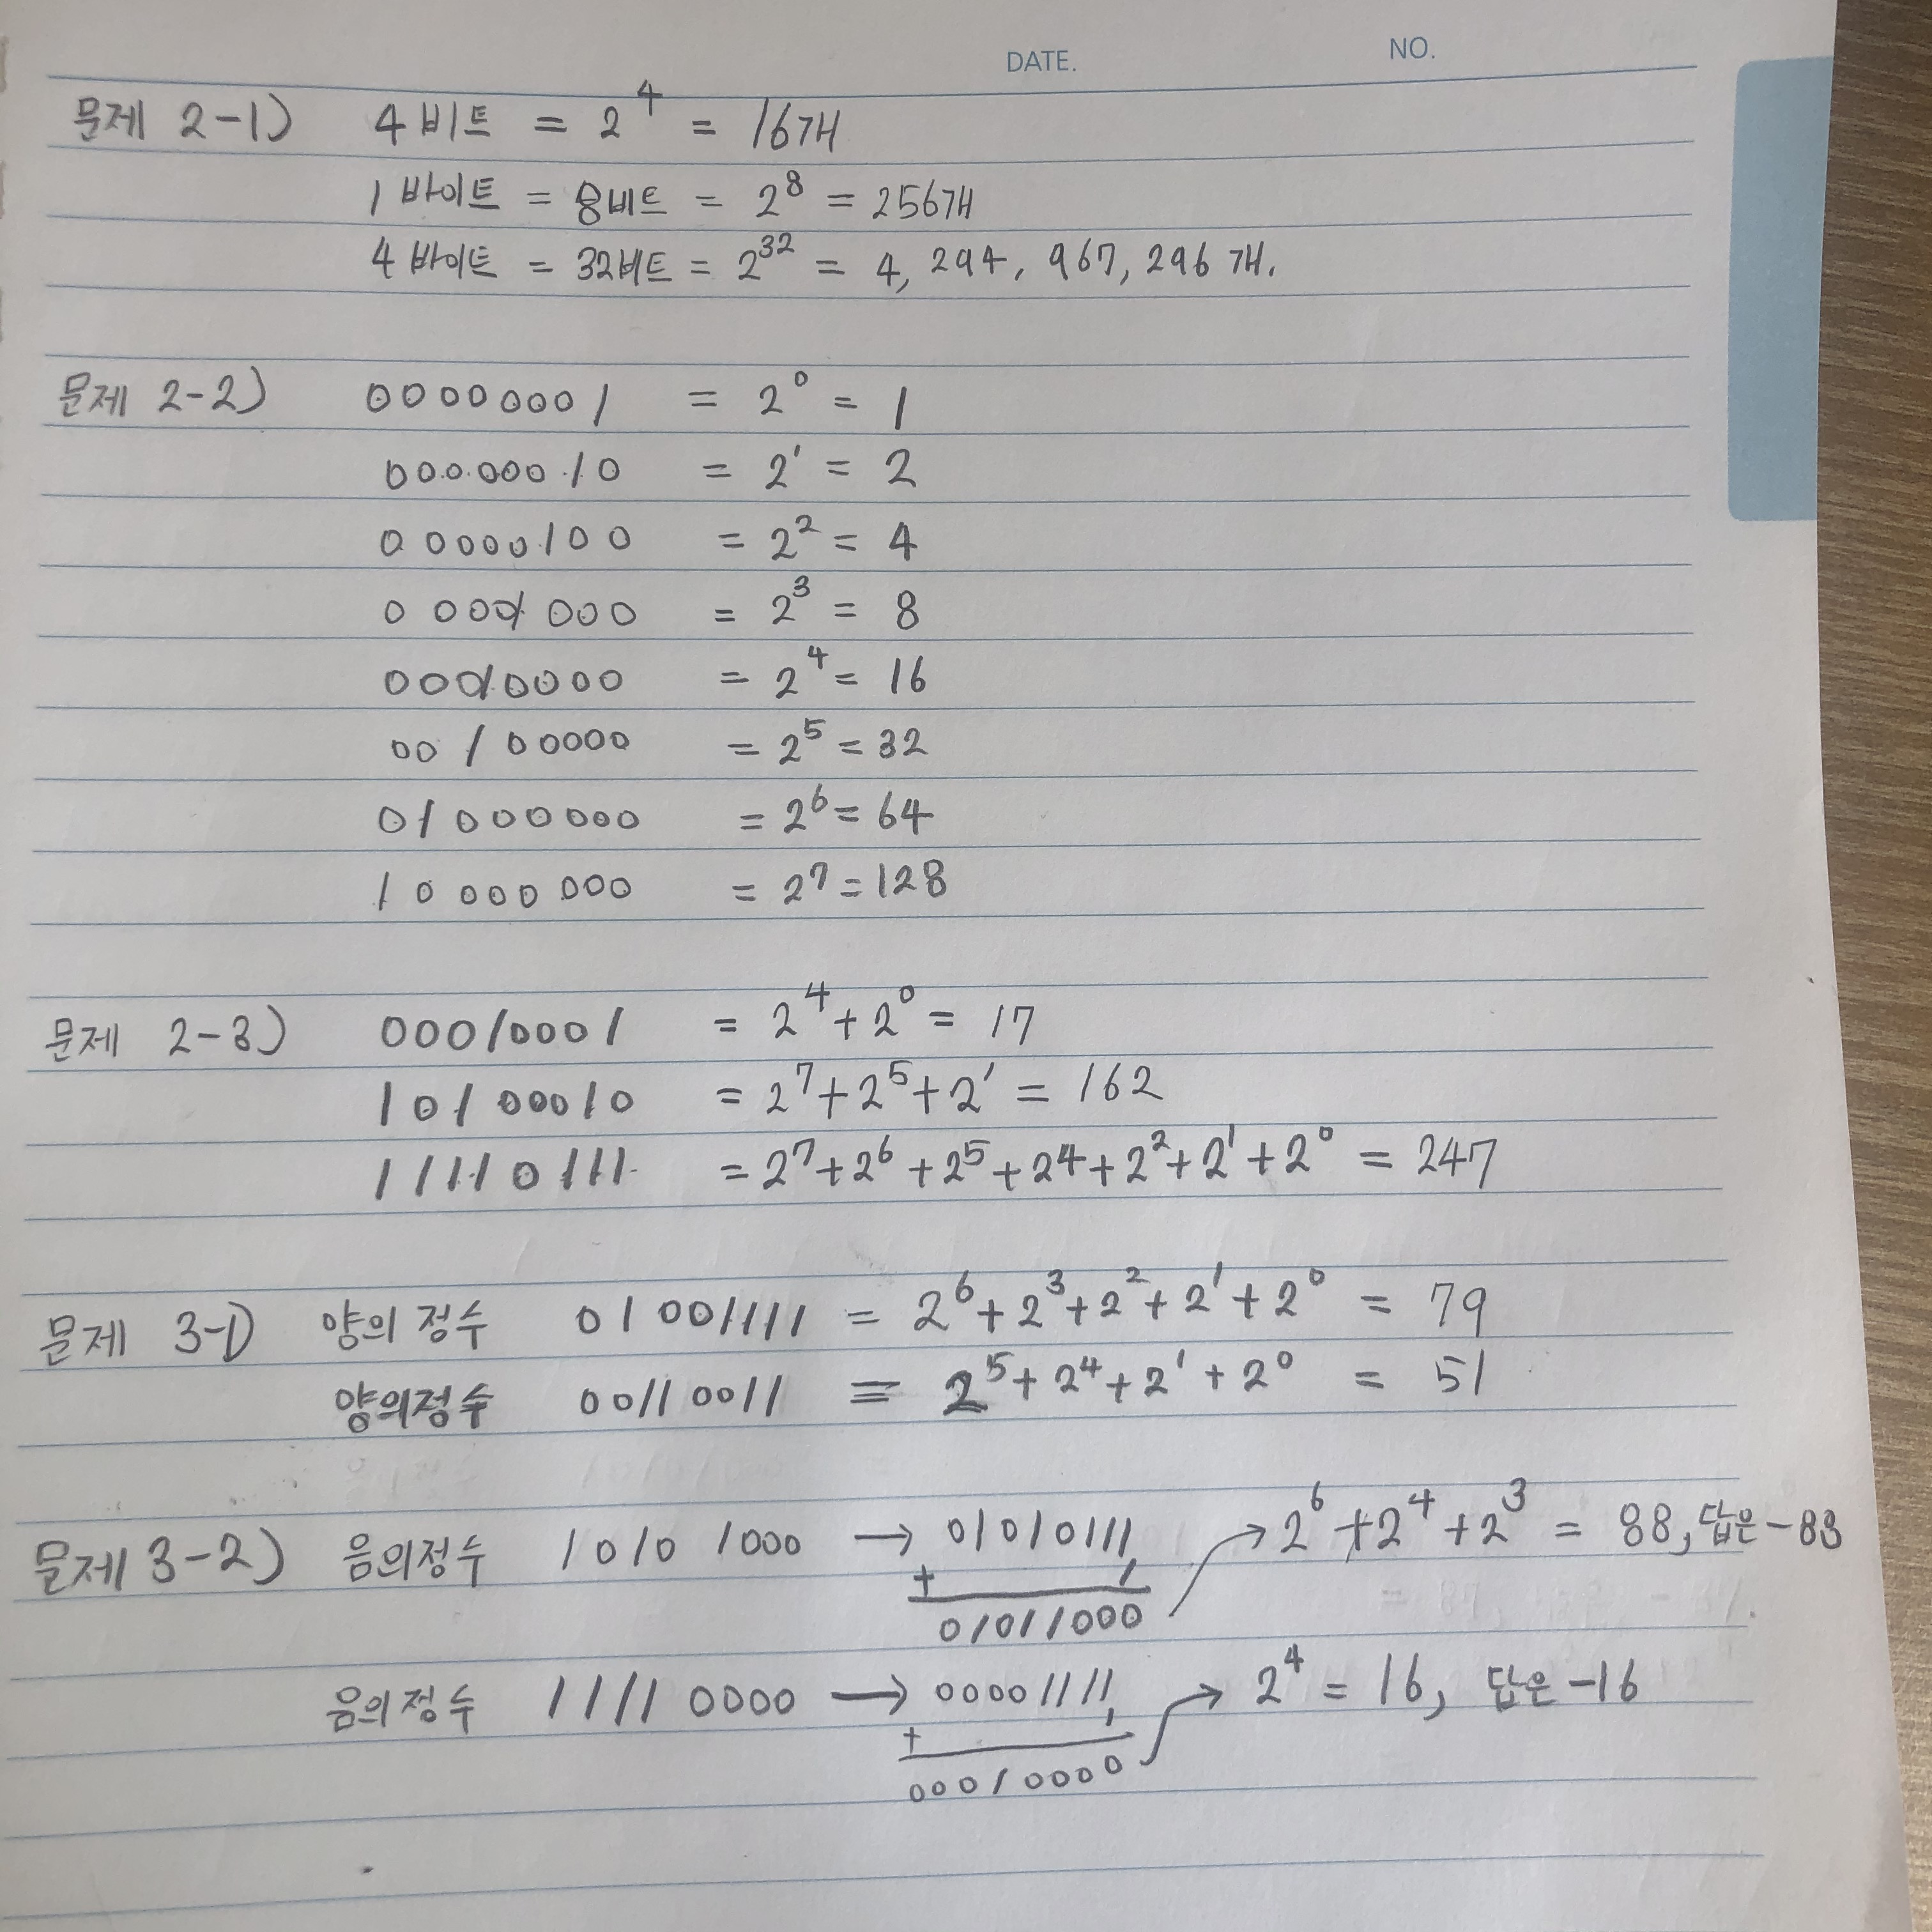 DATE. NO.
문제 2-1) 4비트 = 2⁴ = 16개
1 바이트 = 8비트 = 2⁸ = 256개
4 바이트 = 32비트 = 2³² = 4, 294, 967, 296 개.
문제 2-2) 00000001 = 2⁰ = 1
00000010 = 2¹ = 2
00000100 = 2² = 4
00001000 = 2³ = 8
00010000 = 2⁴ = 16
00100000 = 2⁵ = 32
01000000 = 2⁶ = 64
10000000 = 2⁷ = 128
문제 2-3) 00010001 = 2⁴ + 2⁰ = 17
10100010 = 2⁷ + 2⁵ + 2¹ = 162
11110111 = 2⁷ + 2⁶ + 2⁵ + 2⁴ + 2² + 2¹ + 2⁰ = 247
문제 3-1) 양의 정수 01001111 = 2⁶ + 2³ + 2² + 2¹ + 2⁰ = 79
양의정수 00110011 = 2⁵ + 2⁴ + 2¹ + 2⁰ = 51
문제 3-2) 음의정수 1010 1000 → 01010111 → 2⁶ + 2⁴ + 2³ = 88, 답은 -88
+ 1
01011000
음의정수 1111 0000 → 00001111 → 2⁴ = 16, 답은 -16
+ 1
00010000